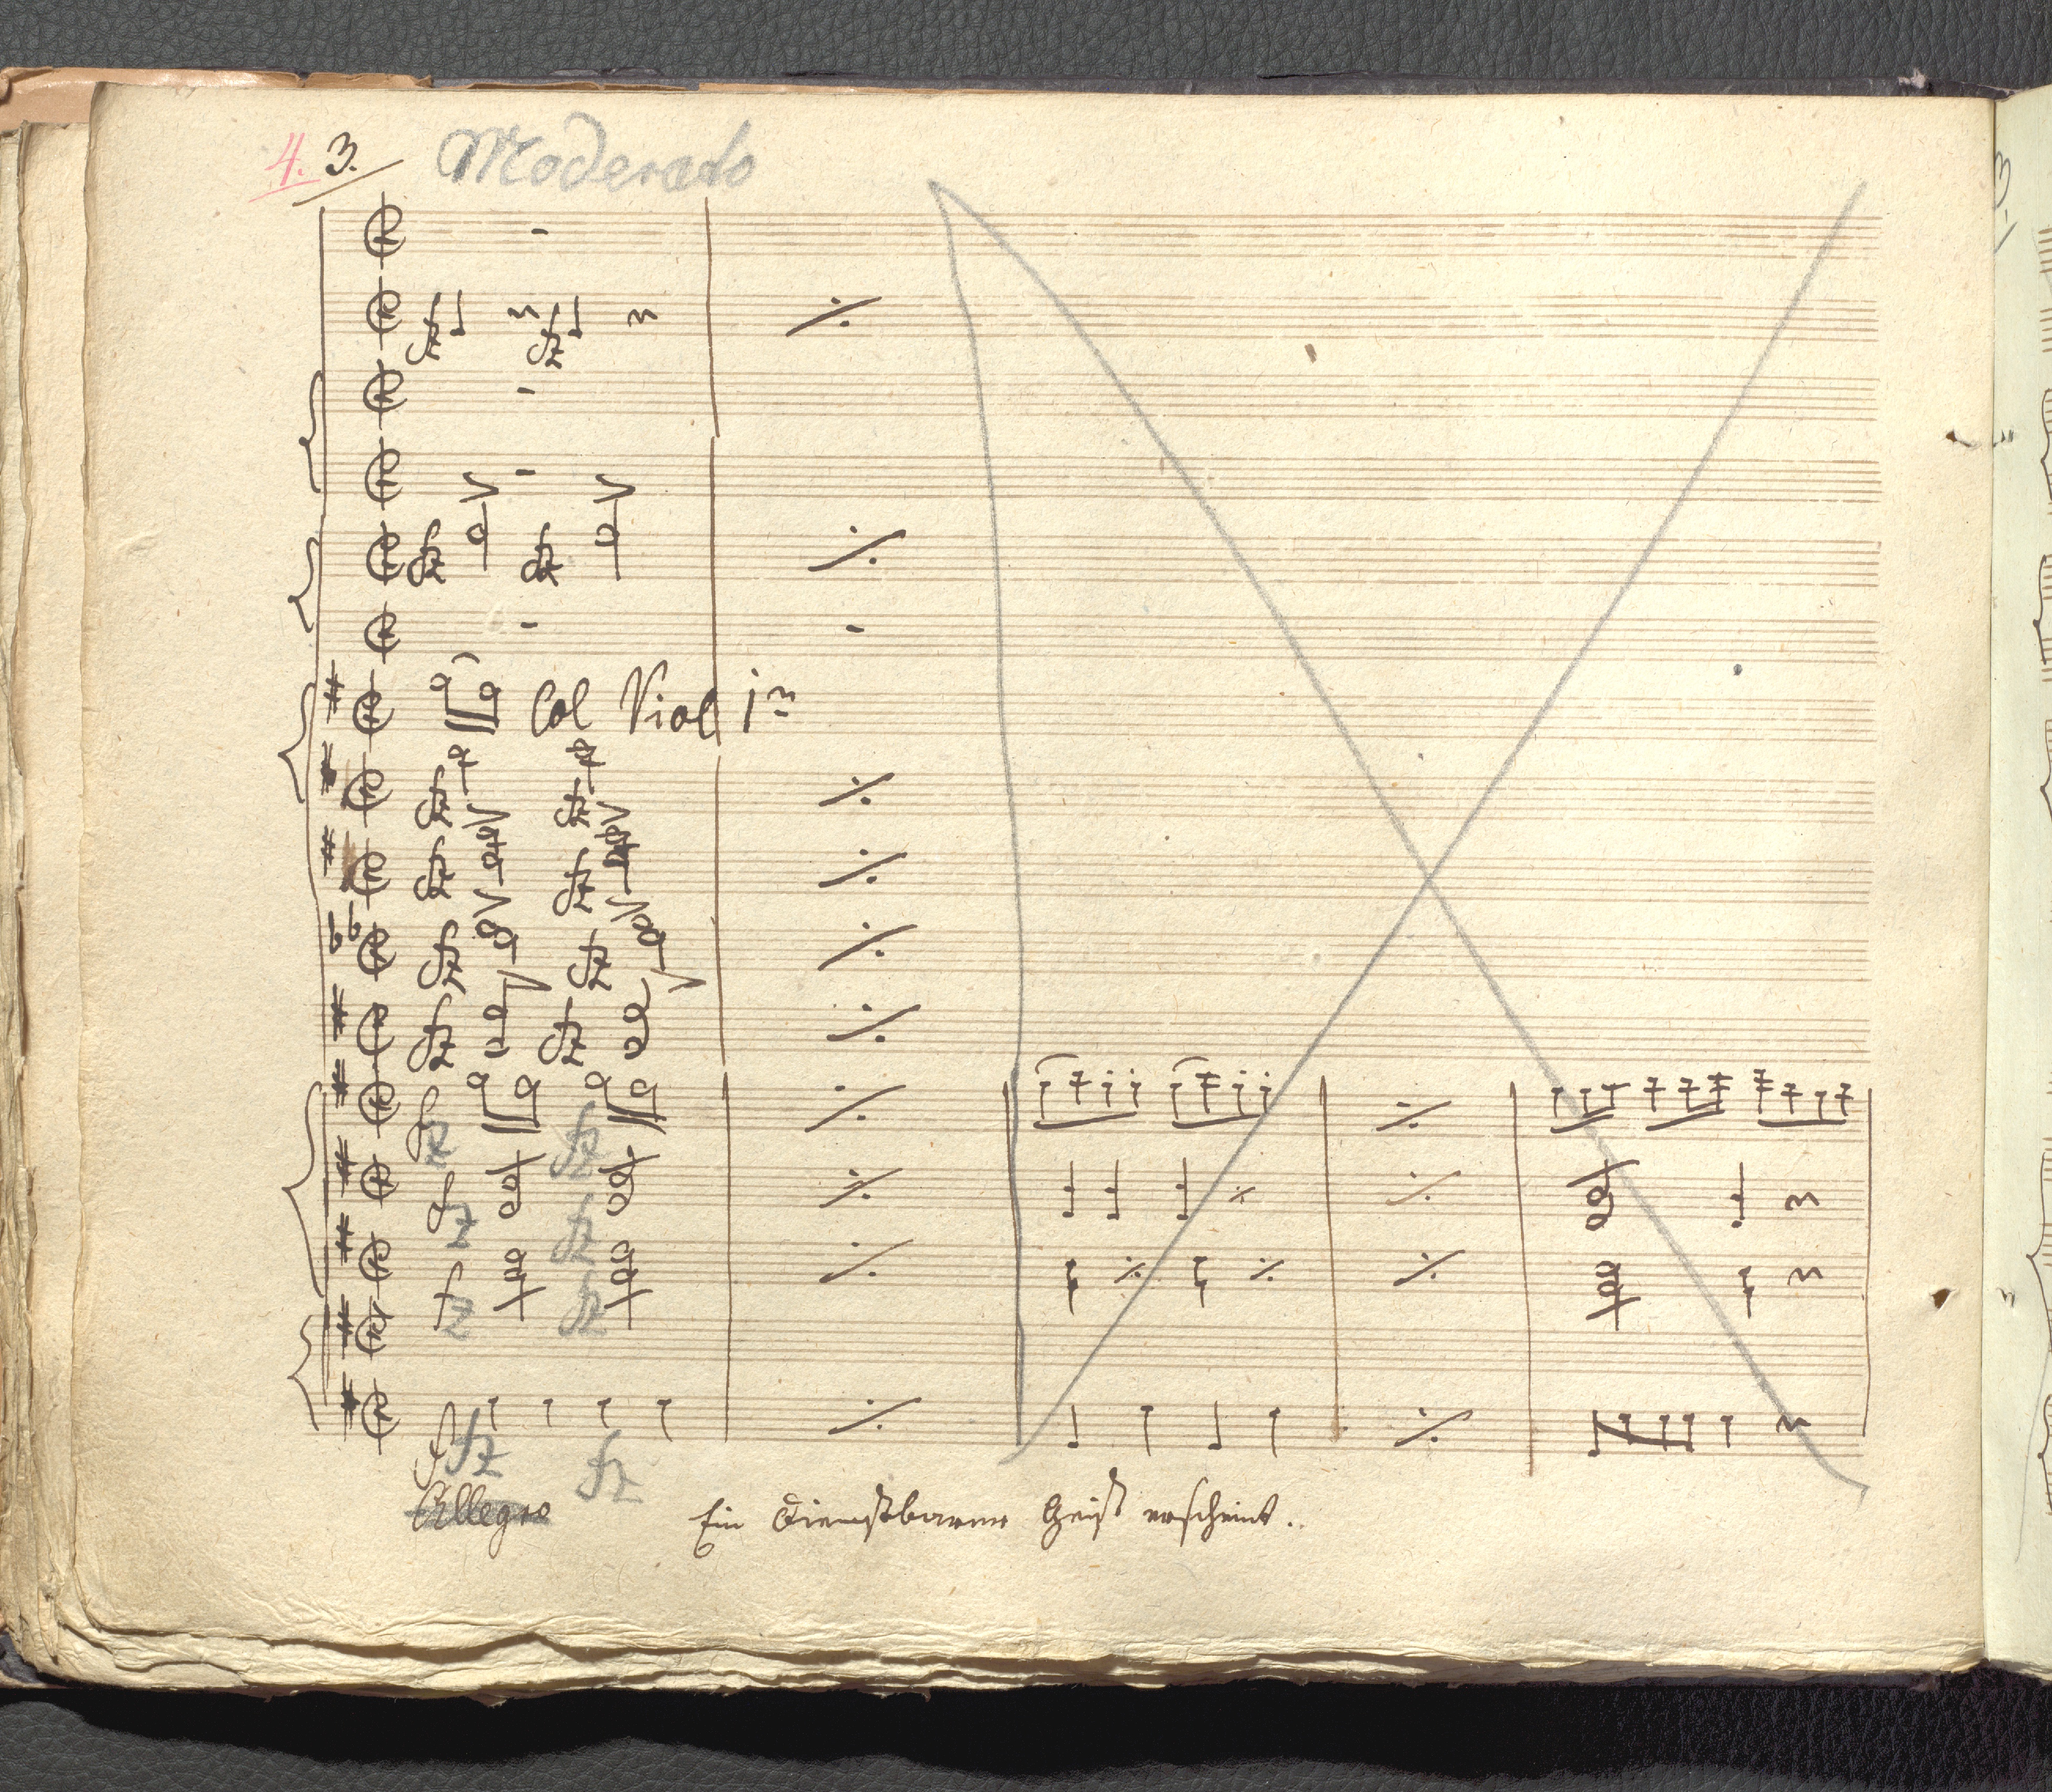 4. 3. Moderato
fz fz
fz fz
Col Viol 1mo
fz fz
fz fz
fz fz
fz fz
fz fz
fz fz
fz fz
f fz fz
Allegro Ein dienstbarer Geist erscheint.